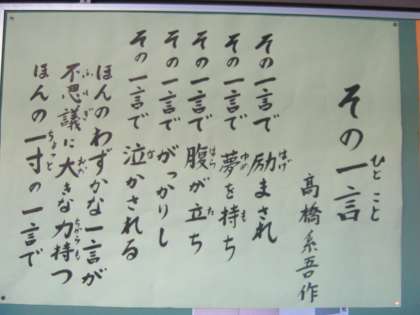 その一言
ひとこと
高橋系吾作
その一言で励まされ
はげ
その一言で夢を持ち
ゆめ も
その一言で腹が立ち
はら た
その一言でがっかりし
その一言で泣かされる
な
ほんのわずかな一言が
不思議に大きな力持つ
ふしぎ おお ちからも
ほんの一寸の一言で
ちょっと